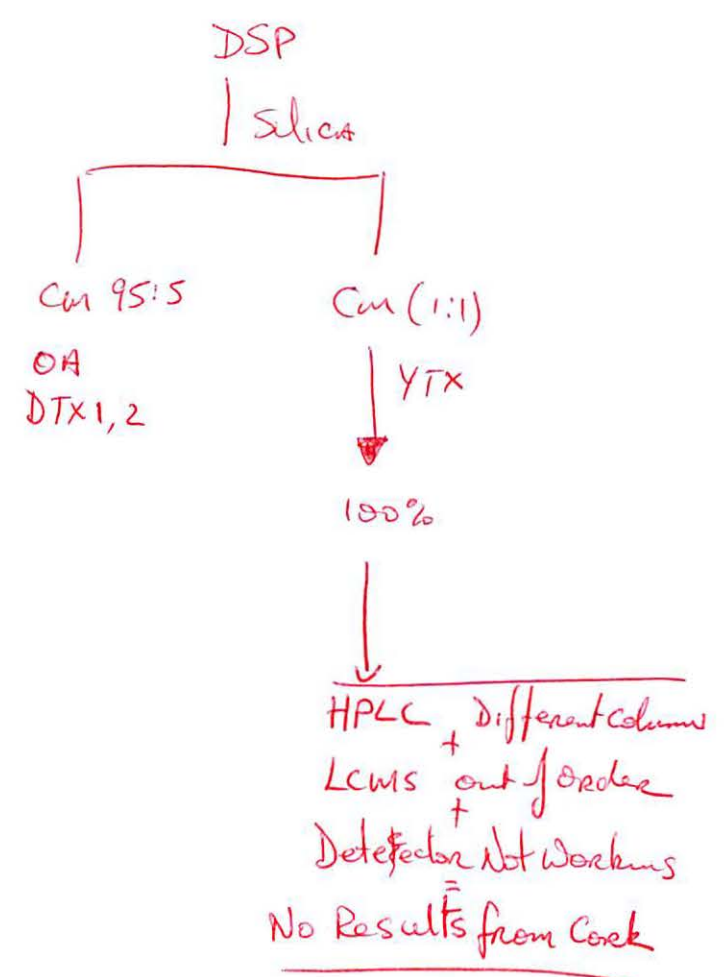 DSP
Silica
Cm 95:5
Cm (1:1)
OA
YTX
DTX1,2
100%
HPLC + Different Columns
LCMS out of Order
+
Detector Not Working
=
No Results from Cork